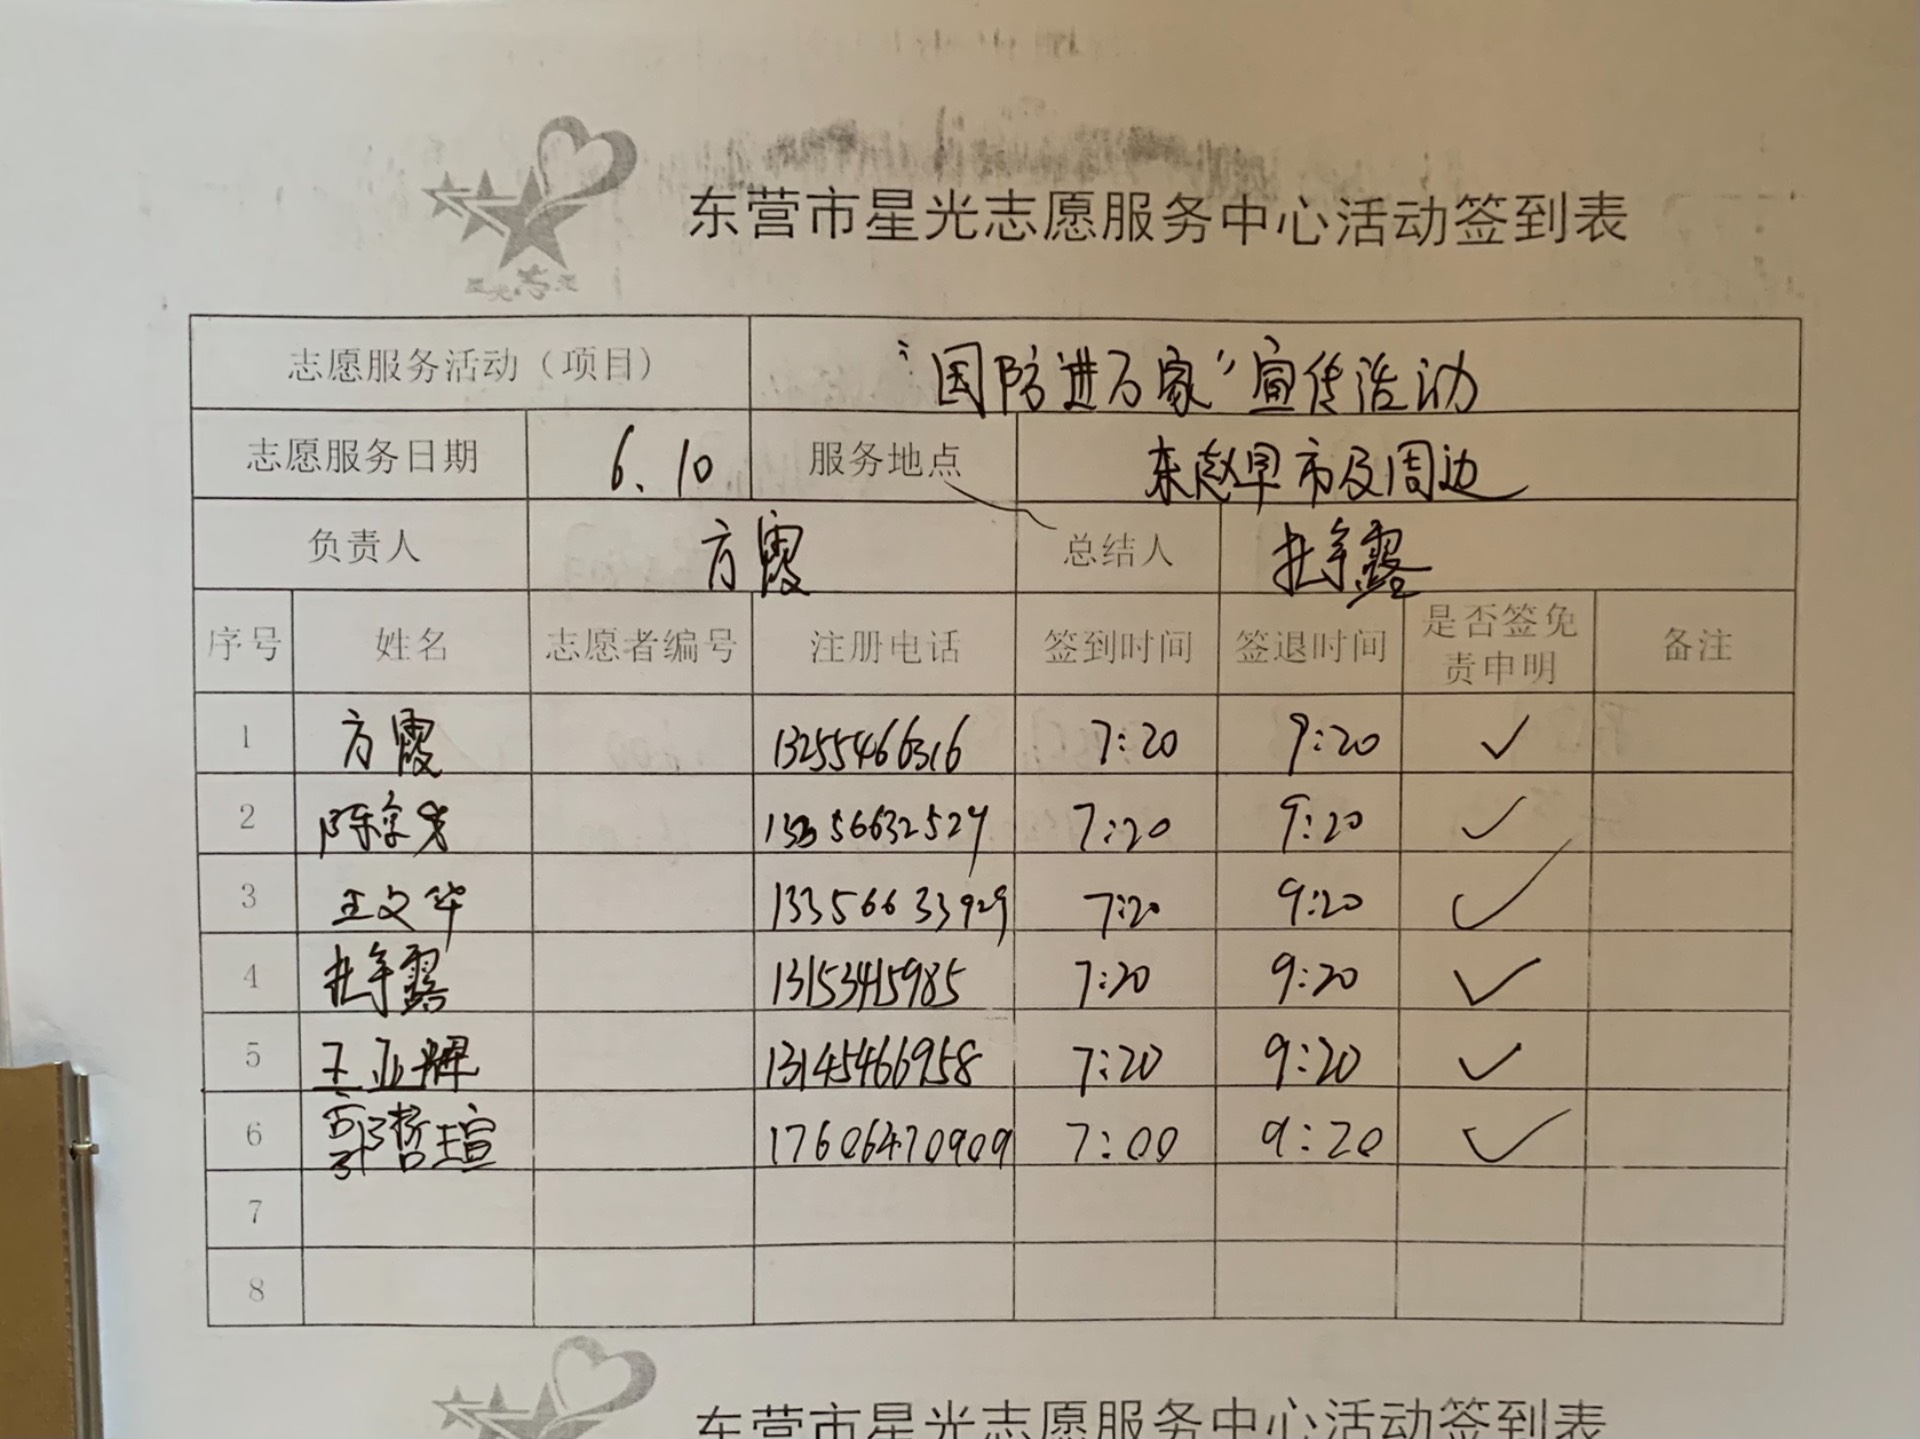 东营市星光志愿服务中心活动签到表
志愿服务活动（项目） “国防进万家”宣传活动
志愿服务日期 6.10 服务地点 东赵早市及周边
负责人 方霞 总结人
序号 姓名 志愿者编号 注册电话 签到时间 签退时间 是否签免责申明 备注
1 方霞 13255466316 7:20 9:20 ✓
2 7:20 9:20 ✓
3 王文华 13356633929 7:20 9:20 ✓
4 13153415985 7:20 9:20 ✓
5 王亚辉 13145466958 7:20 9:20 ✓
6 郭哲瑄 17606470909 7:00 9:20 ✓
7
8
东营市星光志愿服务中心活动签到表